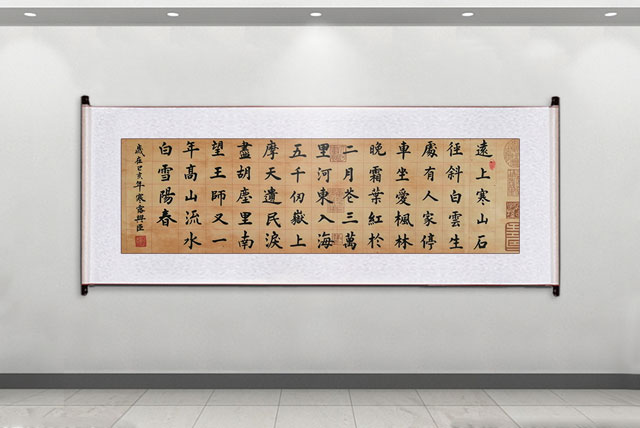 遠上寒山石
径斜白雲生
處有人家停
車坐愛楓林
晚霜葉紅於
二月花三萬
里河東入海
五千仞嶽上
摩天遺民淚
盡胡塵里南
望王師又一
年髙山流水
白雪陽春
歲在己亥年寒露興臣